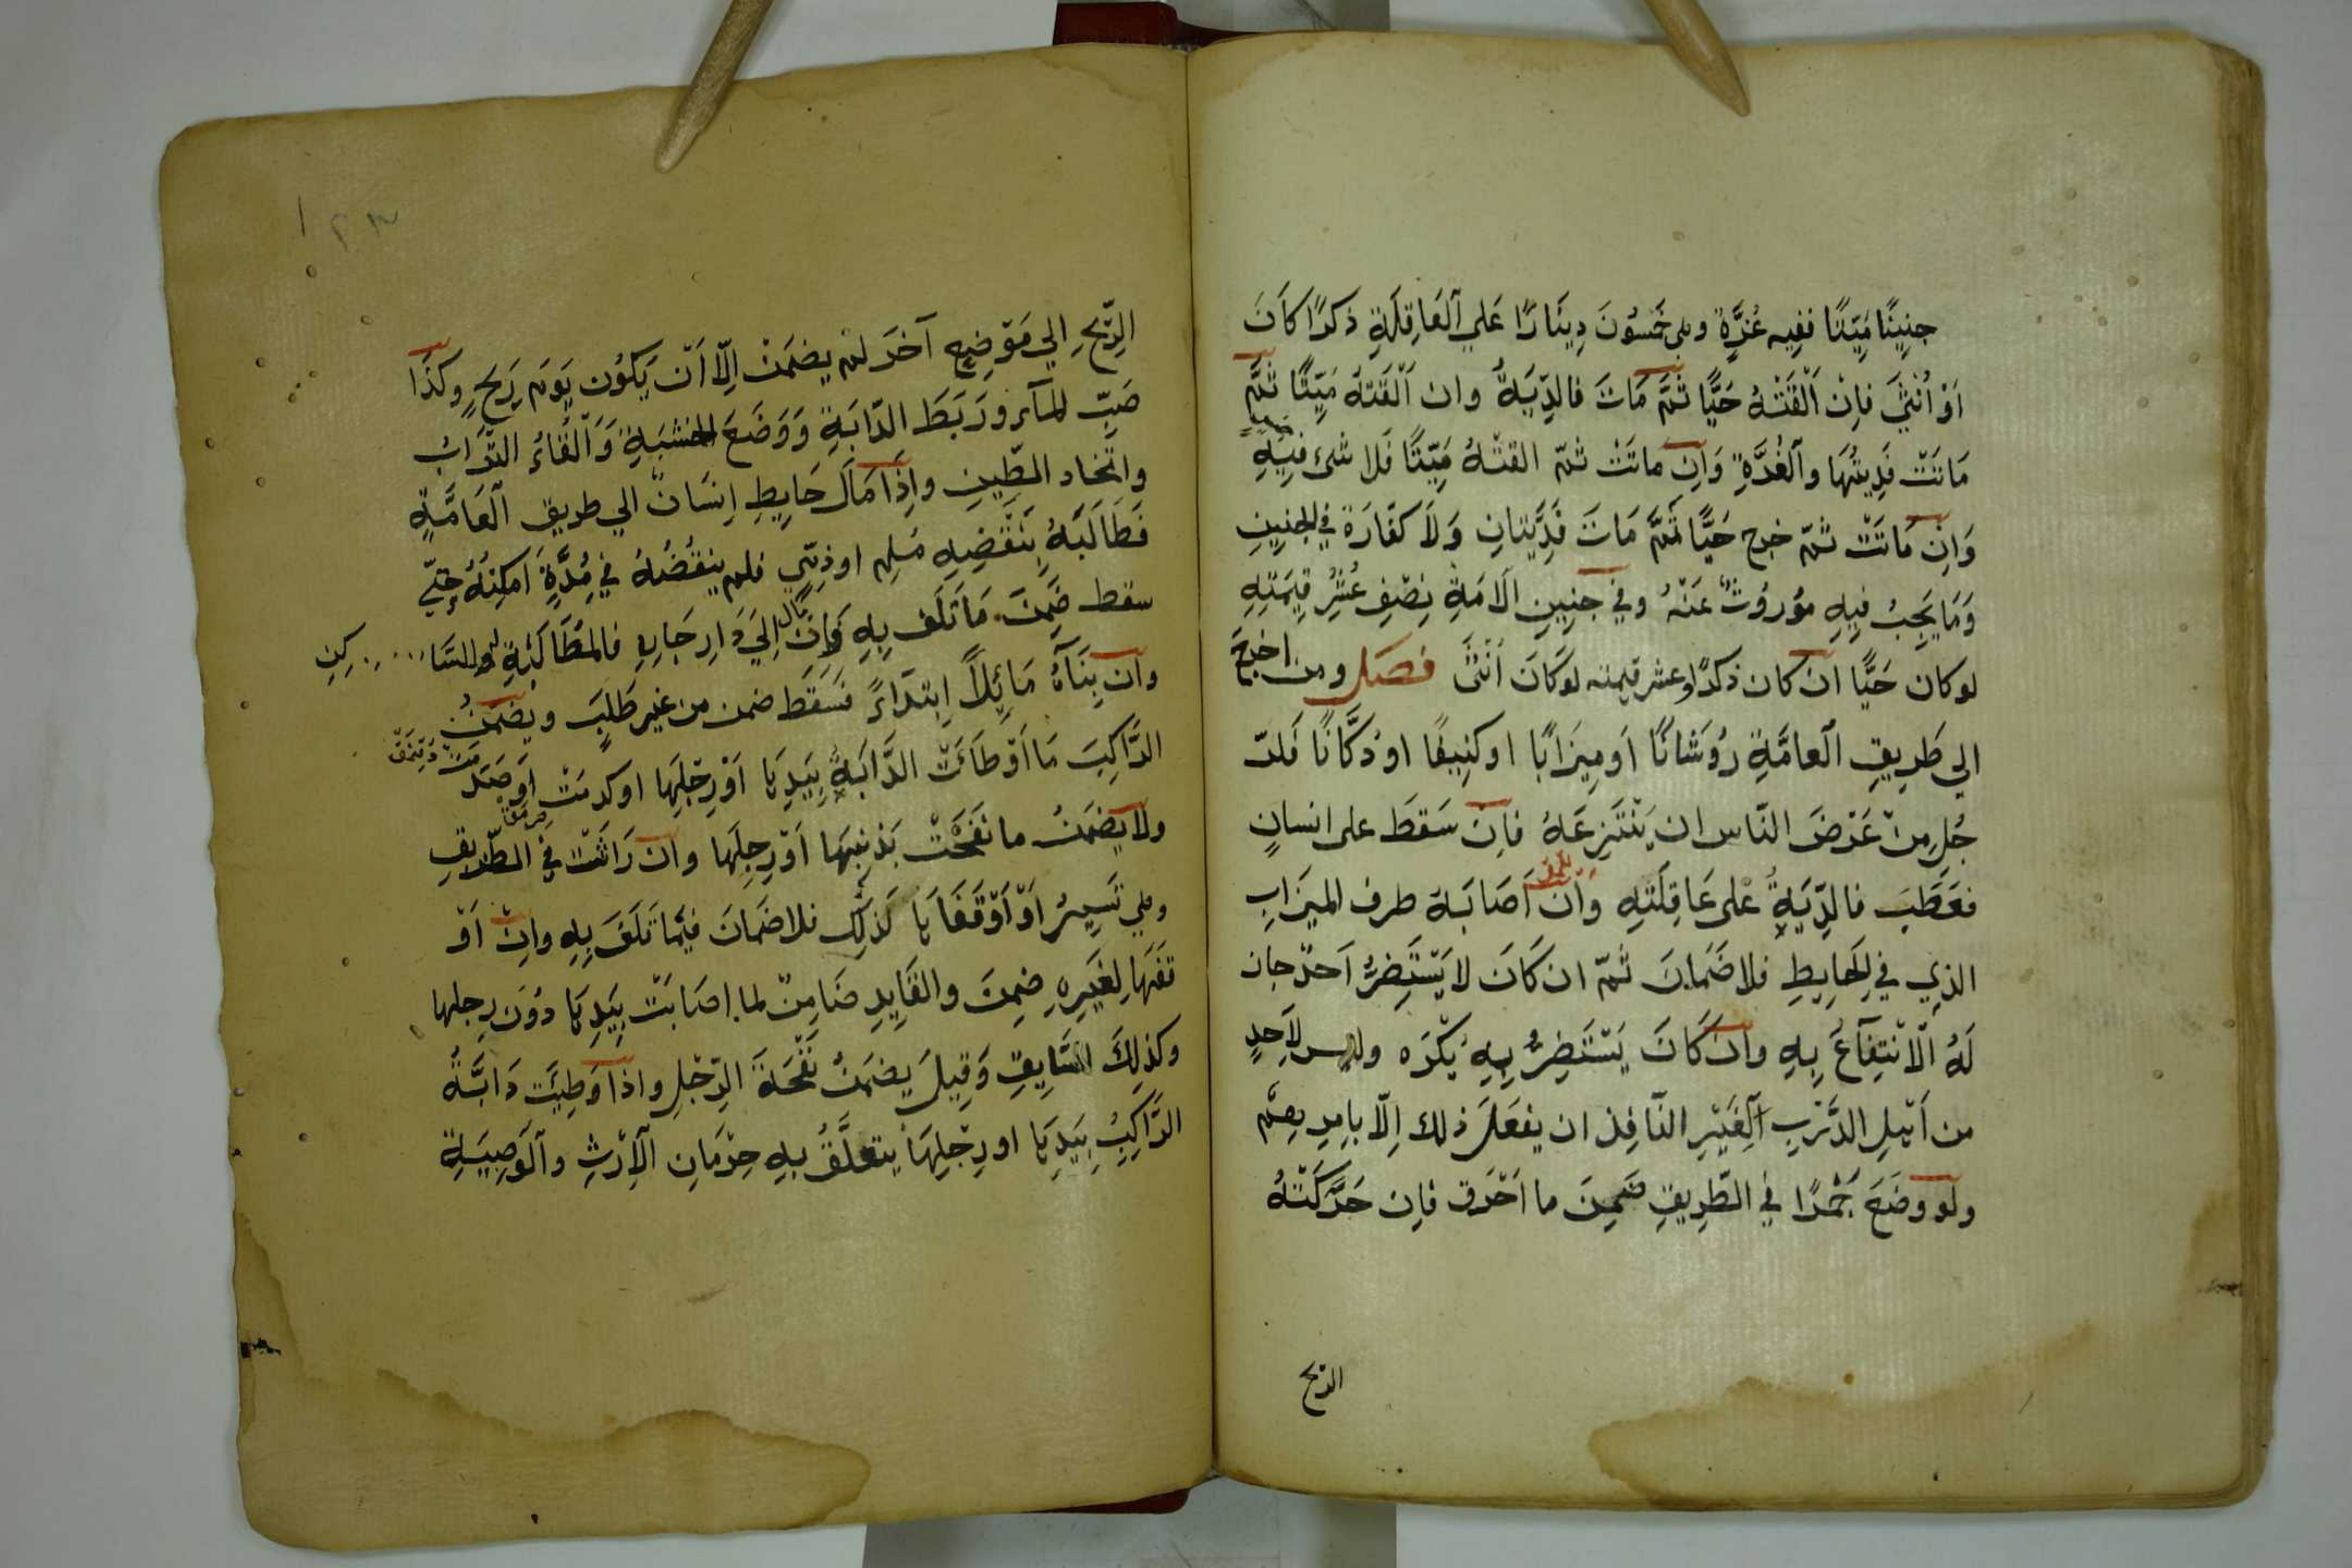 جنِينًا مَيِّتًا ففِيه غُرَّةٍ وهى خَمسُونَ دِينَارًا عَلي اَلعَاقِلَةِ ذكرًا كَانَ
اَوْ اُنْثَى فاِنْ اَلْقَتْهُ حَيًّا ثُمَّ مَاتَ فالدِّيَةُ وان اَلْقَتهُ مَيِّتًا ثُمَّ
مَاتَتْ فَدِيتُهَا واَلْغُرَّةِ وَاِن ماتَتْ ثمّ القتْهُ مَيِّتًا فَلا شئ فِيْهِ
وَاِنْ مَاتَتْ ثمّ خرج حَيًّا ثُمَّ مَاتَ فَدِيَتَانِ وَلَا كفّارَة في الجنِينِ
وَمَا يَجِبُ فِيهِ مَوْرُوثٌ عَنْهُ وفي جنِينِ الَامَةِ نِصْفِ عُشْرِ قِيمَتِهِ
لوكان حَيًّا ان كان ذكرًا وعشر قيمته لوكَانَ اُنْثَى فصَل ومن اخرَجَ
الي طَرِيقِ اَلعامَّةِ رُوشَانًا اَو مِيزَابًا اوكنِيفًا اودكَّانًا فَلرَ
جُلِ مِنْ عَرْضَ النّاس ان يَنْتَزِعَهُ فاِنْ سَقَطَ على انسانٍ
فعَطَبَ فالدِّيَةُ عْلى عَاقِلَتِهِ وَاْن اَصَابَهُ طرف الميزَابِ
الذِي في الحَايِطِ فلا ضَمَانَ ثمّ ان كَانَ لا يَسْتَضِرُّ اَحدٌ جاز
لَهُ اْلاْنْتِفَآعُ بِهِ واِن كَانَ يَسْتَضِرُّ بِهِ يُكْرَه وليس لاَحَدٍ
من اَهلِ الدَّرْبِ اَلْغَيْرِ النّافِذ ان يفعَلَ ذلك اِلّا باِمرِهِمْ
ولَو وضَعَ جَمْرًا في الطَّرِيقِ ضَمِنَ ما اَحْرَق فاِن حَرَّكَتْهُ
الريح
١٢٣
الرِّيْحِ الي مَوْضِعٍ آخَرَ لمْ يضمَنْ اِلّا اَنْ يَكُون يَوَم رِيَحٍ وكذَا
صَبّ المآء ورَبَطَ الدّابَةِ وَوَضَعَ الخشبَةِ وَاَلْقَاءُ التّرَابُ
واتّخاد الطّينِ واِذَا مَالَ حَايِطِ اِنسَانٌ الي طريق اَلعَامَّةِ
فَطَالَبَهُ بِنَقْضِهِ مُسلِم اوذِمّي فلم ينقُضُهُ في مُدَّةٍ اَمكنهُ حتّي
سقط ضَمِنَ مَا تَلَف بِهِ وَاِن مَالَ اِليَ دَارِ جَارِهِ فالمُطَالَبَةِ لَهُ اوللسَّا كِنِ
وان بِنَآهُ مَائِلًا اِبتدَاءً فسَقَطَ ضمن من غير طَلَبٍ ويضمنُ
الرَّاكِبَ مَا اَوْطَاَتْ الدَّابَةُ بِيَدِهَا اَوْ رِجْلِهَا اوكدمَتْ اَوصَدَمَتْ
ولا يَضمَنُ ما نفَحَتْ بَذنبِهَا اَوْ رِجِلِهَا وان رَاثَتْ في الطّرِيقِ
وهي تَسِيرُ اَوْ اَوْقَفَهَا لَذلِك فلا ضَمَانَ فيمَا تَلَفَ بِهِ واِنْ اَوْ
قفَهَا لِغَيَرِهِ ضِمِنَ والقَايِدِ ضَامِنٌ لما اصَابَتْ بِيَدِهَا دوُن رِجلها
وكذلِكَ السَّايِقِ وَقِيلَ يضمَنُ نَفْحَةَ الرِّجْلِ واذا وَطِيَت دَابَّةُ
الرَّاكِبُ بِيَدِهَا اورِجْلِهَا يتعلَّقُ بهِ حِرْمَانِ اْلاِرْثِ واَلوَصِيَةِ